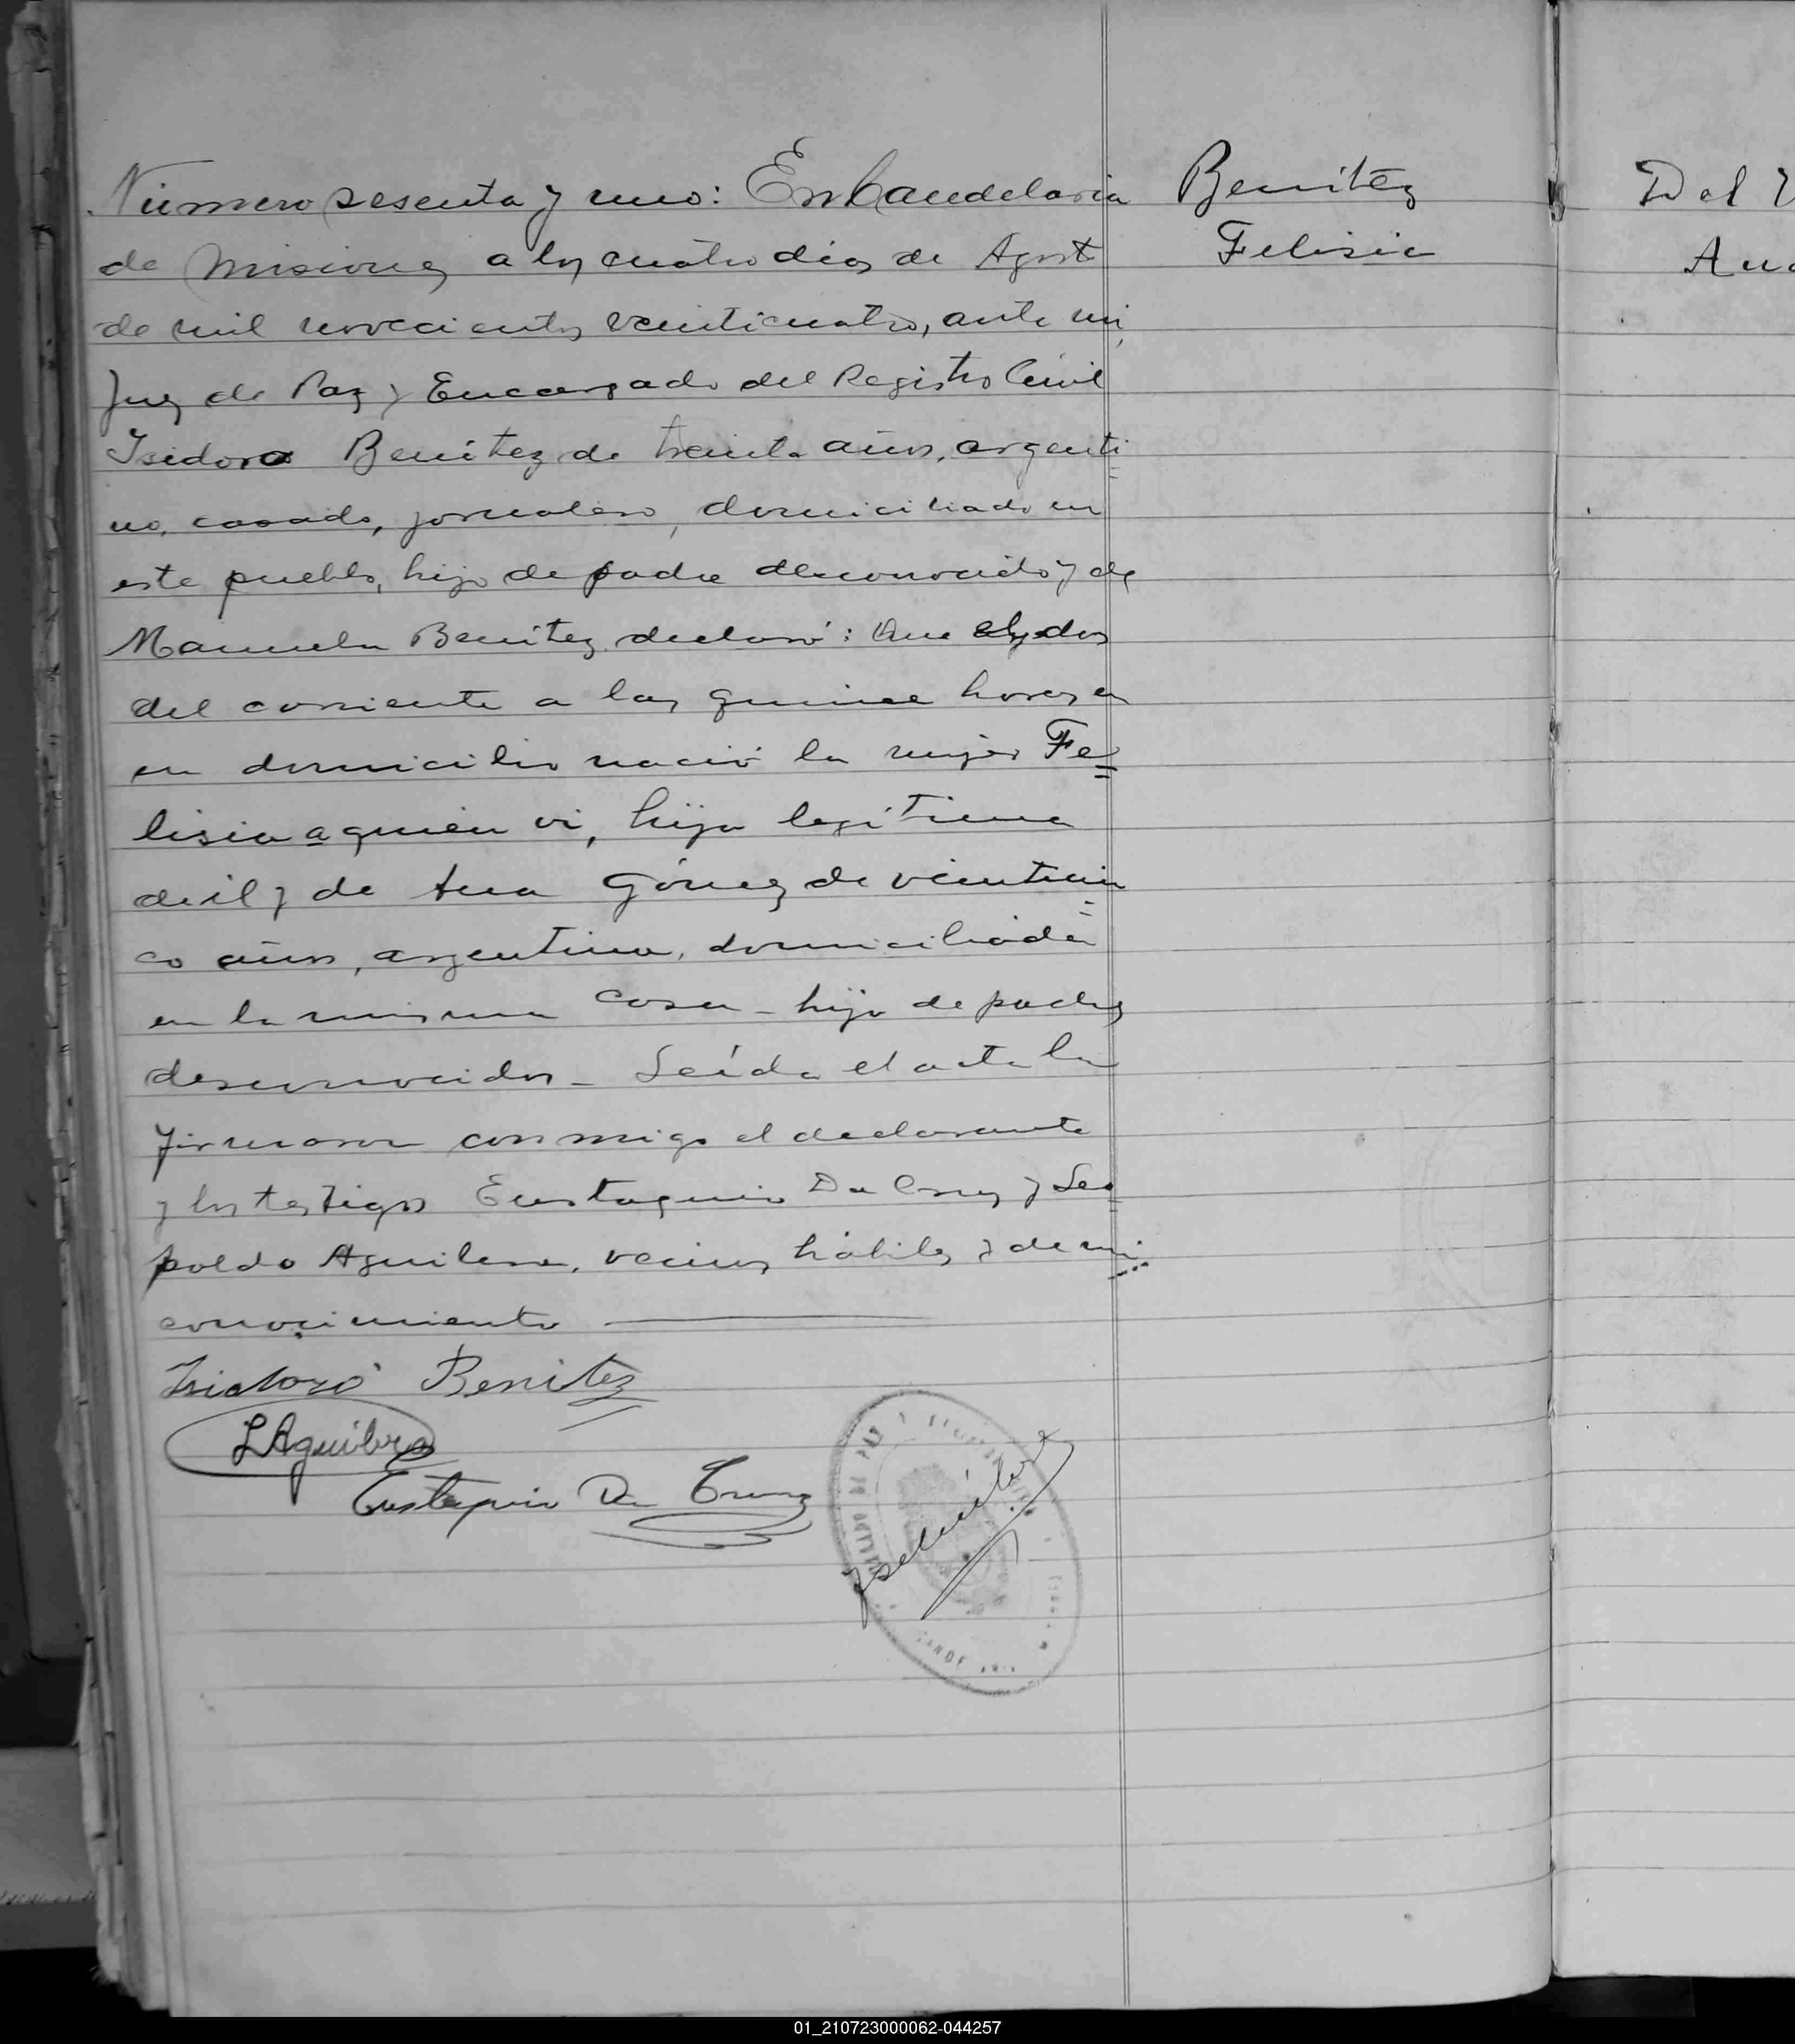 Número sesenta y uno: En Candelaria
de Misiones a los cuatro dias de Agost
de mil novecientos veinticuatro, ante mi,
Juez de Paz y Encargado del Registro Civil
Isidoro Benítez de treinta años, argenti
no, casado, jornalero, domiciliado en
este pueblo, hijo de padre desconocido y de
Manuela Benítez declaró: Que el dos
del corriente a las quince horas en
su domicilio nació la mujer Fe=
lisia a quien vi, hija legítima
de él y de Ana Gómez de veinticin=
co años, argentina, domiciliada
en la misma casa - hija de padres
desconocidos - Leída el acta la
firmaron conmigo el declarante
y los testigos Eustaquio Da Cruz y Leo=
poldo Aguilera, vecinos hábiles y de mi
conocimiento
Isidoro Benitez
LAguilera
Eustaquio Da Cruz
Benítez
Felisia
Del
DE PAZ